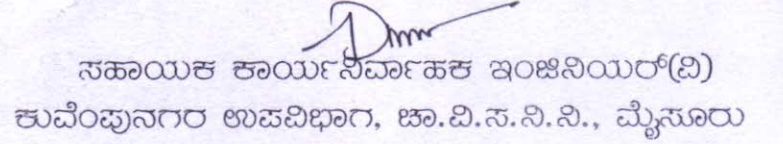 ಸಹಾಯಕ ಕಾರ್ಯನಿರ್ವಾಹಕ ಇಂಜಿನಿಯರ್(ವಿ)
ಕುವೆಂಪುನಗರ ಉಪವಿಭಾಗ, ಚಾ.ವಿ.ಸ.ನಿ.ನಿ., ಮೈಸೂರು